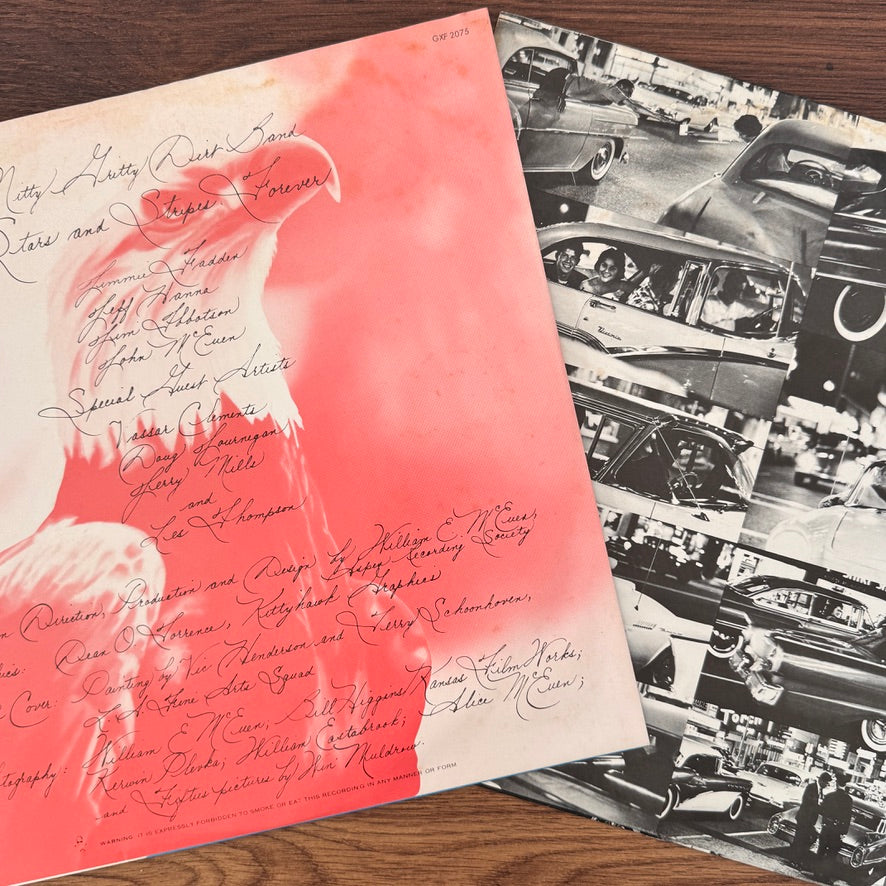 GXF 2075
Nitty Gritty Dirt Band
Stars and Stripes Forever
Jimmie Fadden
Jeff Hanna
Jim Ibbotson
John McEuen
Special Guest Artists
Vassar Clements
Doug Journegan
Jerry Mills
and
Les Thompson
Direction, Production and Design by William E. McEuen,
Aspen Recording Society
Dean O. Torrence, Kittyhawk Graphics
Cover: Painting by Vic Henderson and Terry Schoonhoven,
L.A. Fine Arts Squad
William E McEuen, Bill Higgins/Kansas Film Works;
Kerwin Plevka; William Eastabrook; Alice McEuen;
and Fifties pictures by Phin Muldrow.
WARNING: IT IS EXPRESSLY FORBIDDEN TO SMOKE OR EAT THIS RECORDING IN ANY MANNER OR FORM